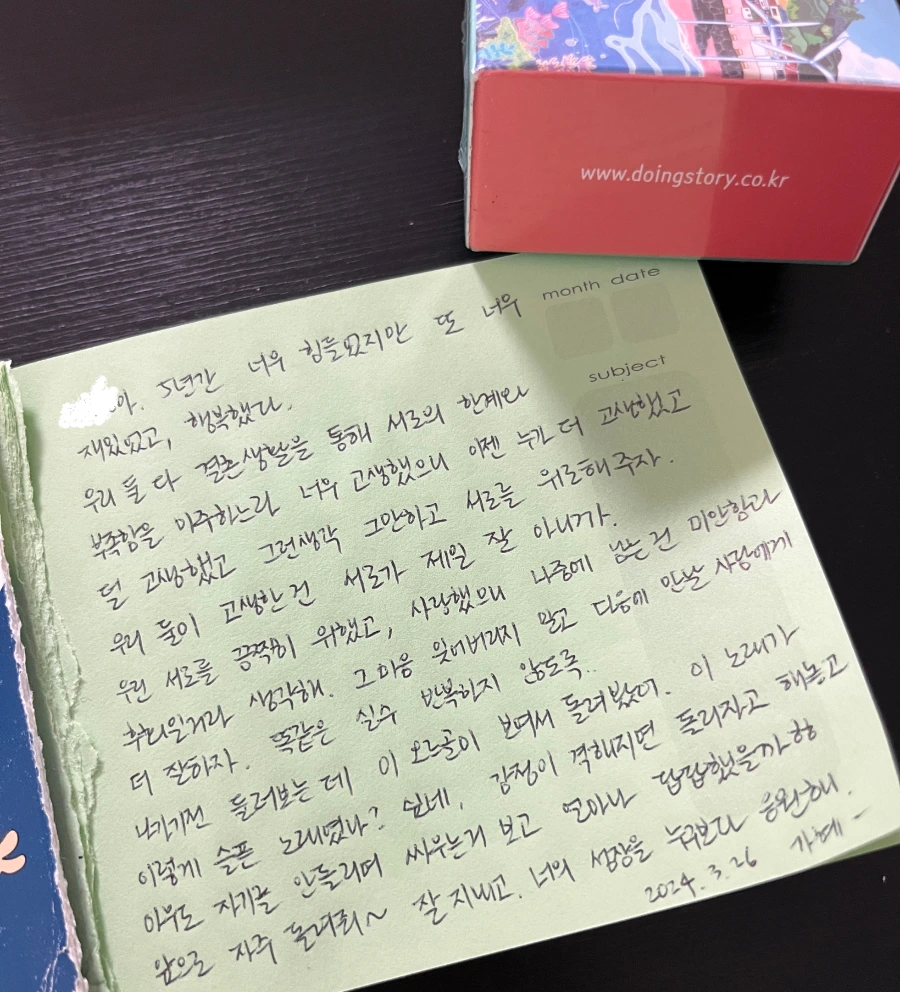 www.doingstory.co.kr
month date
subject
아. 5년간 너무 힘들었지만 또 너무
재밌었고, 행복했다.
우리 둘 다 결혼생활을 통해 서로의 한계와
부족함을 마주하느라 너무 고생했으니 이젠 누가 더 고생했고
덜 고생했고 그런생각 그만하고 서로를 위로해주자.
우리 둘이 고생한건 서로가 제일 잘 아니까.
우린 서로를 끔찍히 위했고, 사랑했으니 나중에 남는건 미안함과
후회일거라 생각해. 그 마음 잊어버리지 말고 다음에 만날 사람에게
더 잘하자. 똑같은 실수 반복하지 않도록..
나가기전 둘러보는데 이 오르골이 보여서 돌려봤어. 이 노래가
이렇게 슬픈 노래였나? 싶네. 감정이 격해지면 돌리자고 해놓고
아무도 자기를 안돌리며 싸우는거 보고 얼마나 답답했을까 ㅎㅎ
앞으로 자주 돌려줘~ 잘 지내고. 너의 성장을 누구보다 응원해.
2024. 3. 26 가혜 -